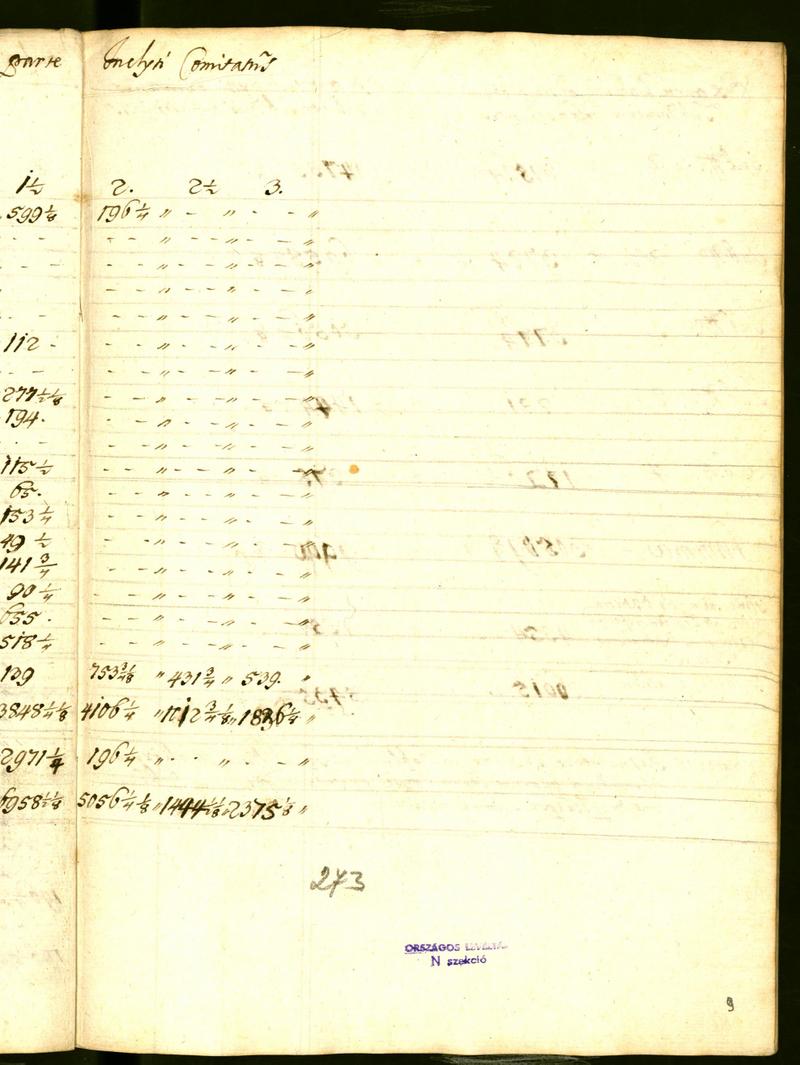 parte Comitatus
1½ 2. 2½ 3.
599⅛ 196¼ " - " - - "
- - - - " - - " - - "
- - - - " - - " - - "
- - - - " - - " - - "
- - - - " - - " - - "
112 - - - " - - " - - "
- - - - " - - " - - "
277½⅛ - - " - - " - - "
194. - - " - - " - - "
- - - - " - - " - - "
115½ - - " - - " - - "
65. - - " - - " - - "
153¼ - - " - - " - - "
49½ - - " - - " - - "
141¾ - - " - - " - - "
90¼ - - " - - " - - "
655. - - " - - " - - "
518¼ - - " - - " - - "
139 753 " 431¾ " 539. "
3848¼⅛ 4106¼ " "
2971¼ 196¼ " - - " - - "
6958½⅛ 5056¼⅛ " 1444½⅛ " 2375⅛ "
273
ORSZÁGOS LEVÉLTÁR
N szekció
9